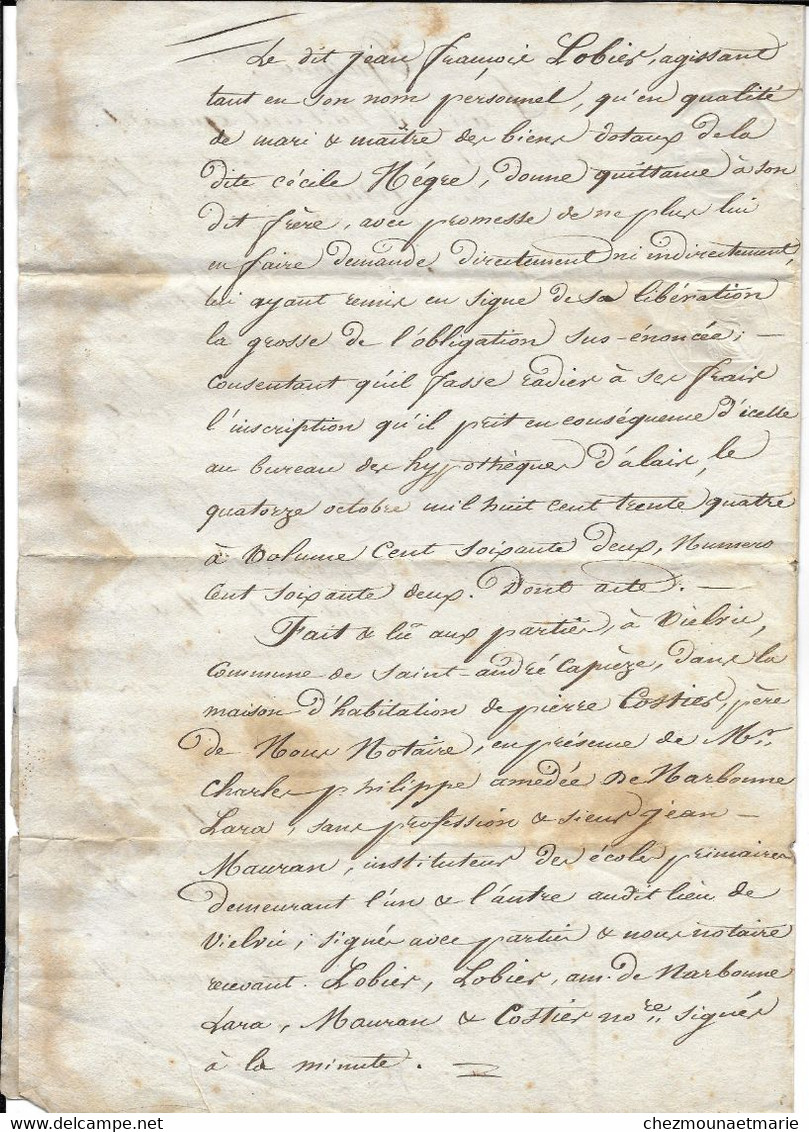 Le dit jean françois Lobier, agissant
tant en son nom personnel, qu'en qualité
de mari & maître des biens dotaux de la
dite cécile Négre, donne quittance à son
dit frère, avec promesse de ne plus lui
en faire demande directement ni indirectement,
lui ayant remis en signe de sa libération
la grosse de l'obligation sus-énoncée; —
consentant qu'il fasse radier à ses frais
l'inscription qu'il prit en conséquence d'icelle
au bureau des hypothèques d'alais, le
quatorze octobre mil huit cent trente quatre
à Volume cent soixante deux, Numero
cent soixante deux. Dont acte. —
Fait & lû aux parties, à Vielvic,
commune de saint-andré capèze, dans la
maison d'habitation de pierre Costier, père
de Nous Notaire, en présence de Mr.
charles philippe amédée de Narbonne
Lara, sans profession & sieur jean —
Mauran, instituteur des écoles primaires
demeurant l'un & l'autre audit lieu de
Vielvic; signés avec parties & nous notaire
recevant. Lobier, Lobier, am. de Narbonne
Lara, Mauran & Costier nore. signés
à la minute. =
chezmounaetmarie